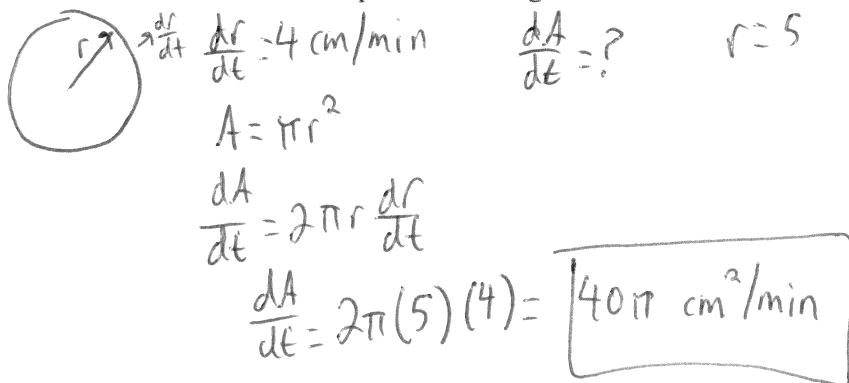 r dr/dt dr/dt = 4 cm/min dA/dt = ? r = 5
A = πr²
dA/dt = 2πr dr/dt
dA/dt = 2π(5)(4) = 40π cm²/min